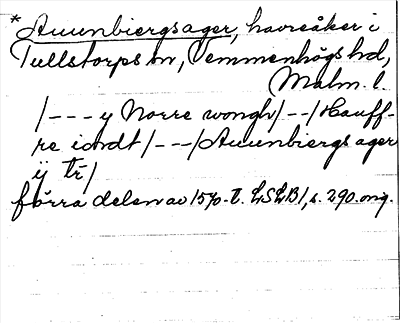 * Auunbiergsager, havreåker i
Tullstorps sn, Vemmenhögs hd,
Malm. l.
/---y Norre wongh/--/Hauff-
re iordt/---/Auunbiergs ager
ij tr̄/
förra delen av 1570-t. LSLB1, s. 290. orig.